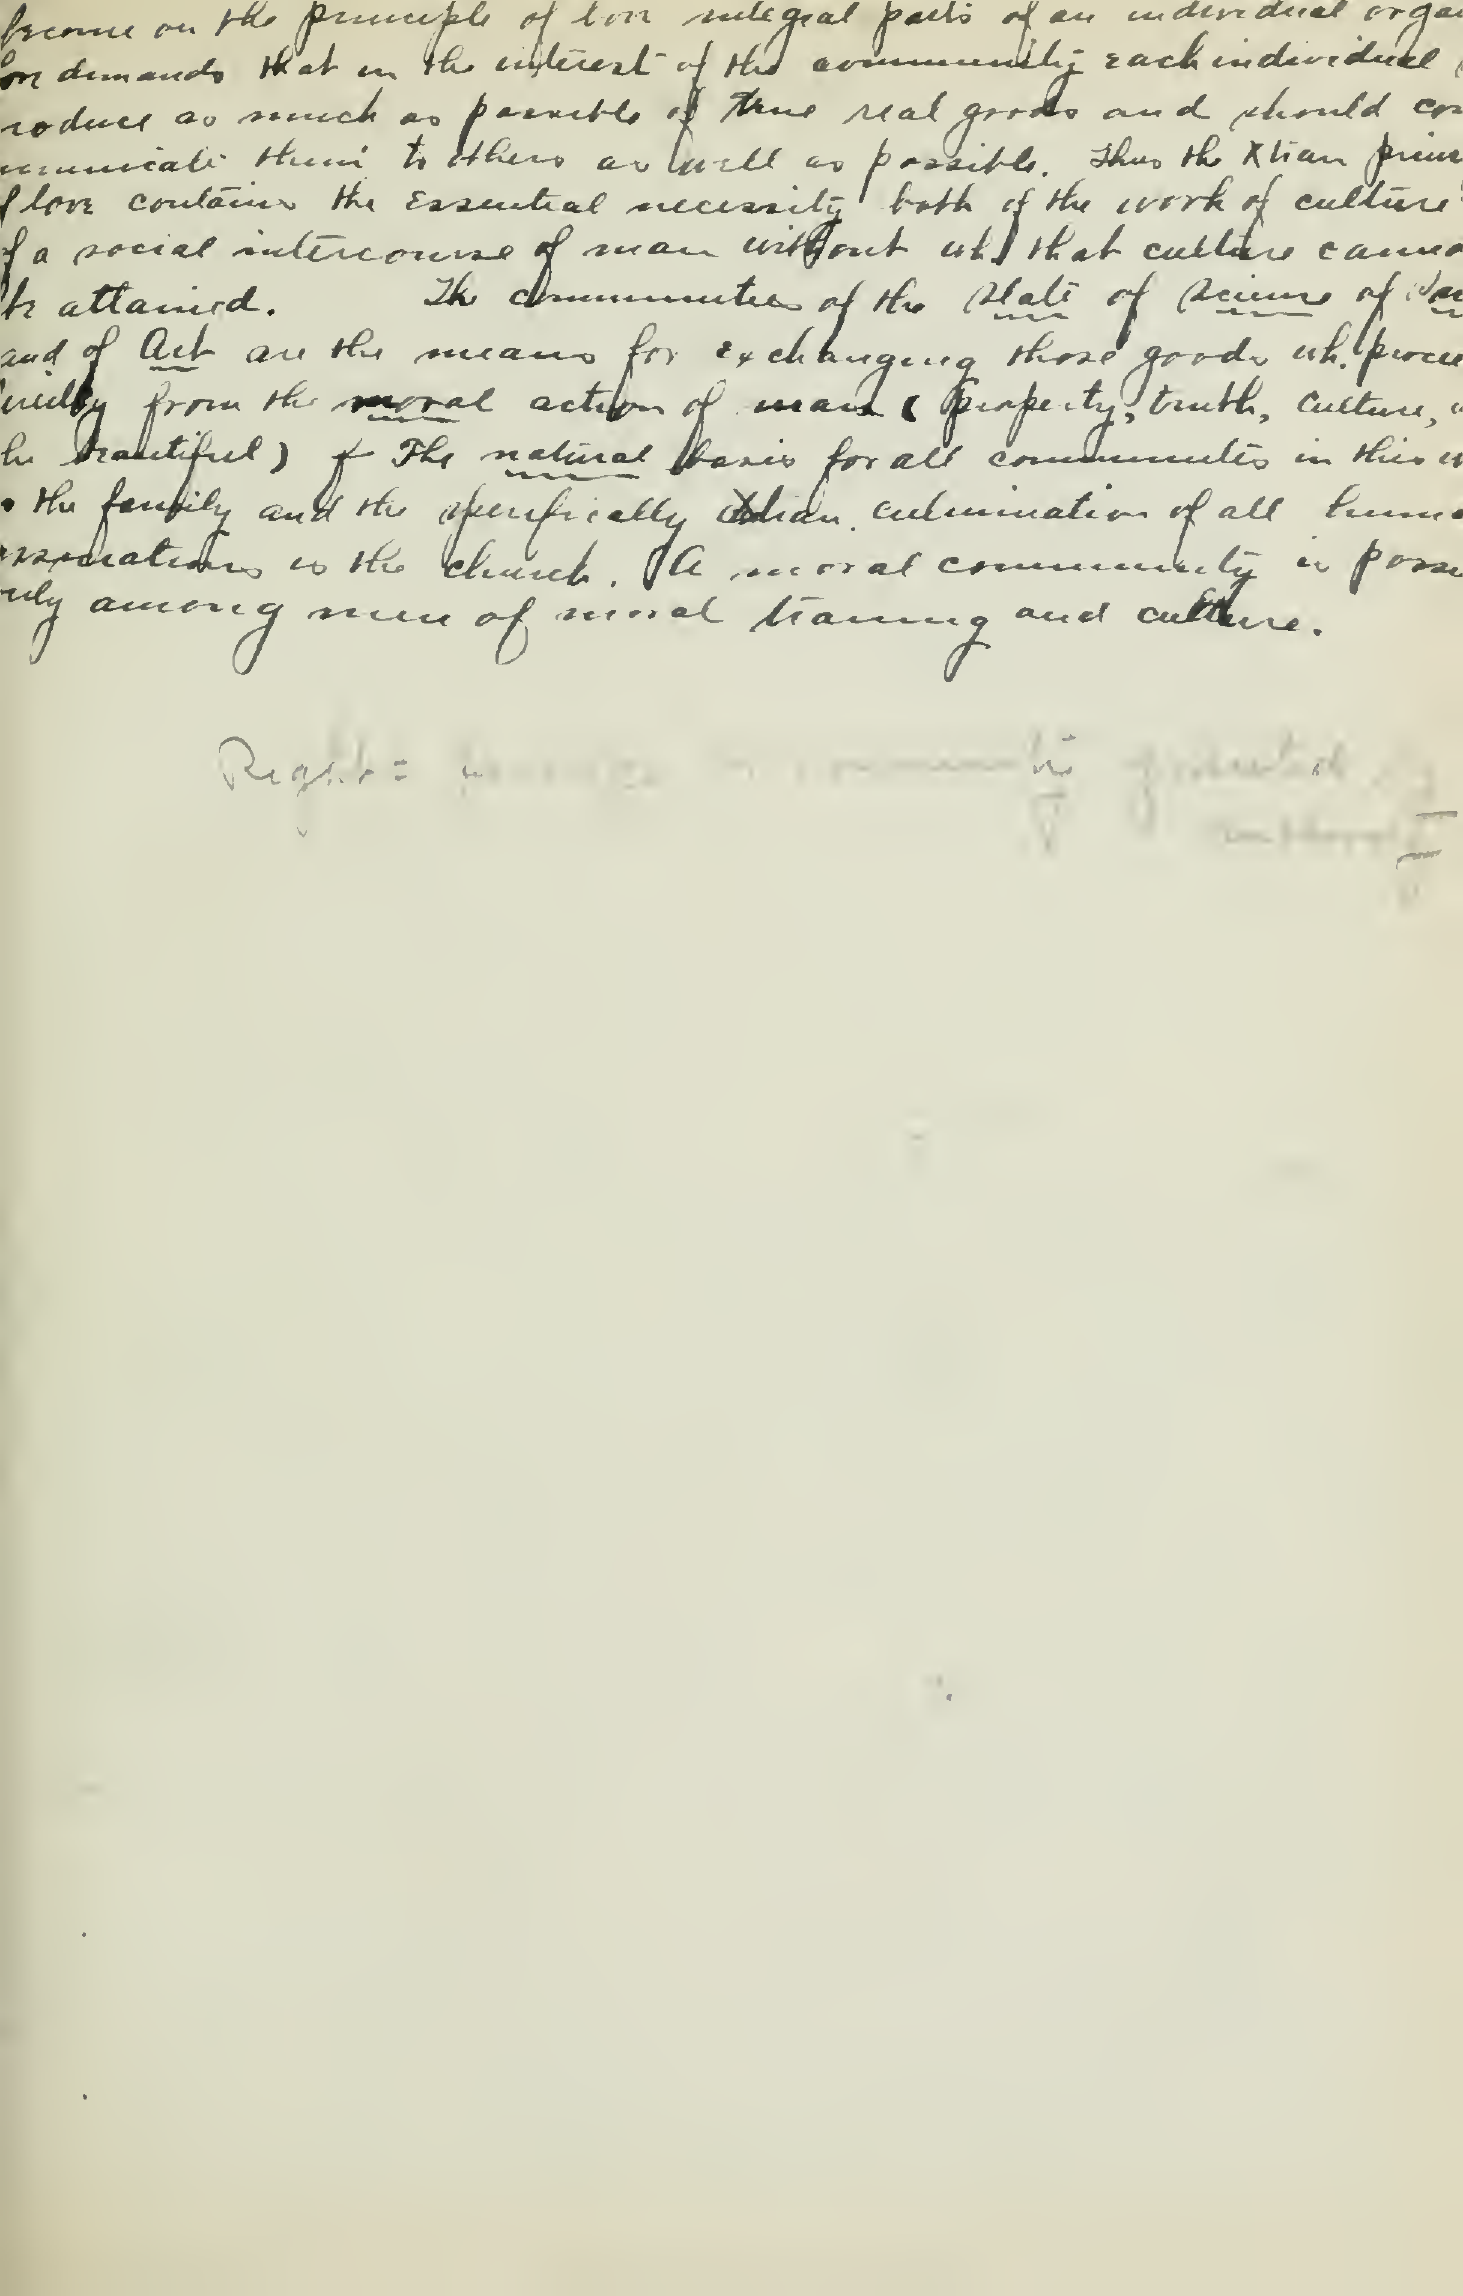 become on the principle of love integral parts of an individual orga
Love demands that in the interest of the community each individual
roduce as much as possible of true real goods and should com
municate them to others as well as possible. Thus the Xtian prin
f love contains the essential necessity both of the work of culture
f a social intercourse of man without wh. that culture canno
be attained. The communities of the State of Science of
and of Art are the means for exchanging those goods wh. procee
from the moral action of man (property, truth, culture,
he beautiful) The natural basis for all communities in this w
the family and the specifically Xtian culmination of all huma
associations is the church. A moral community is possi
nly among men of moral training and culture.
Right =